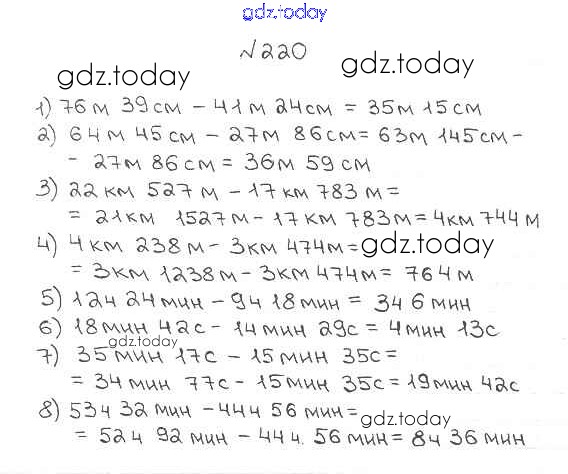 gdz.today
№220
gdz.today
gdz.today
1) 76м 39см - 41м 24см = 35м 15см
2) 64м 45см - 27м 86см = 63м 145см -
- 27м 86см = 36м 59см
3) 22км 527м - 17км 783м =
= 21км 1527м - 17км 783м = 4км 744м
4) 4км 238м - 3км 474м =
gdz.today
= 3км 1238м - 3км 474м = 764м
5) 12ч 24мин - 9ч 18мин = 3ч 6мин
6) 18мин 42с - 14мин 29с = 4мин 13с
gdz.today
7) 35мин 17с - 15мин 35с =
= 34мин 77с - 15мин 35с = 19мин 42с
8) 53ч 32мин - 44ч 56мин =
gdz.today
= 52ч 92мин - 44ч. 56мин = 8ч 36мин